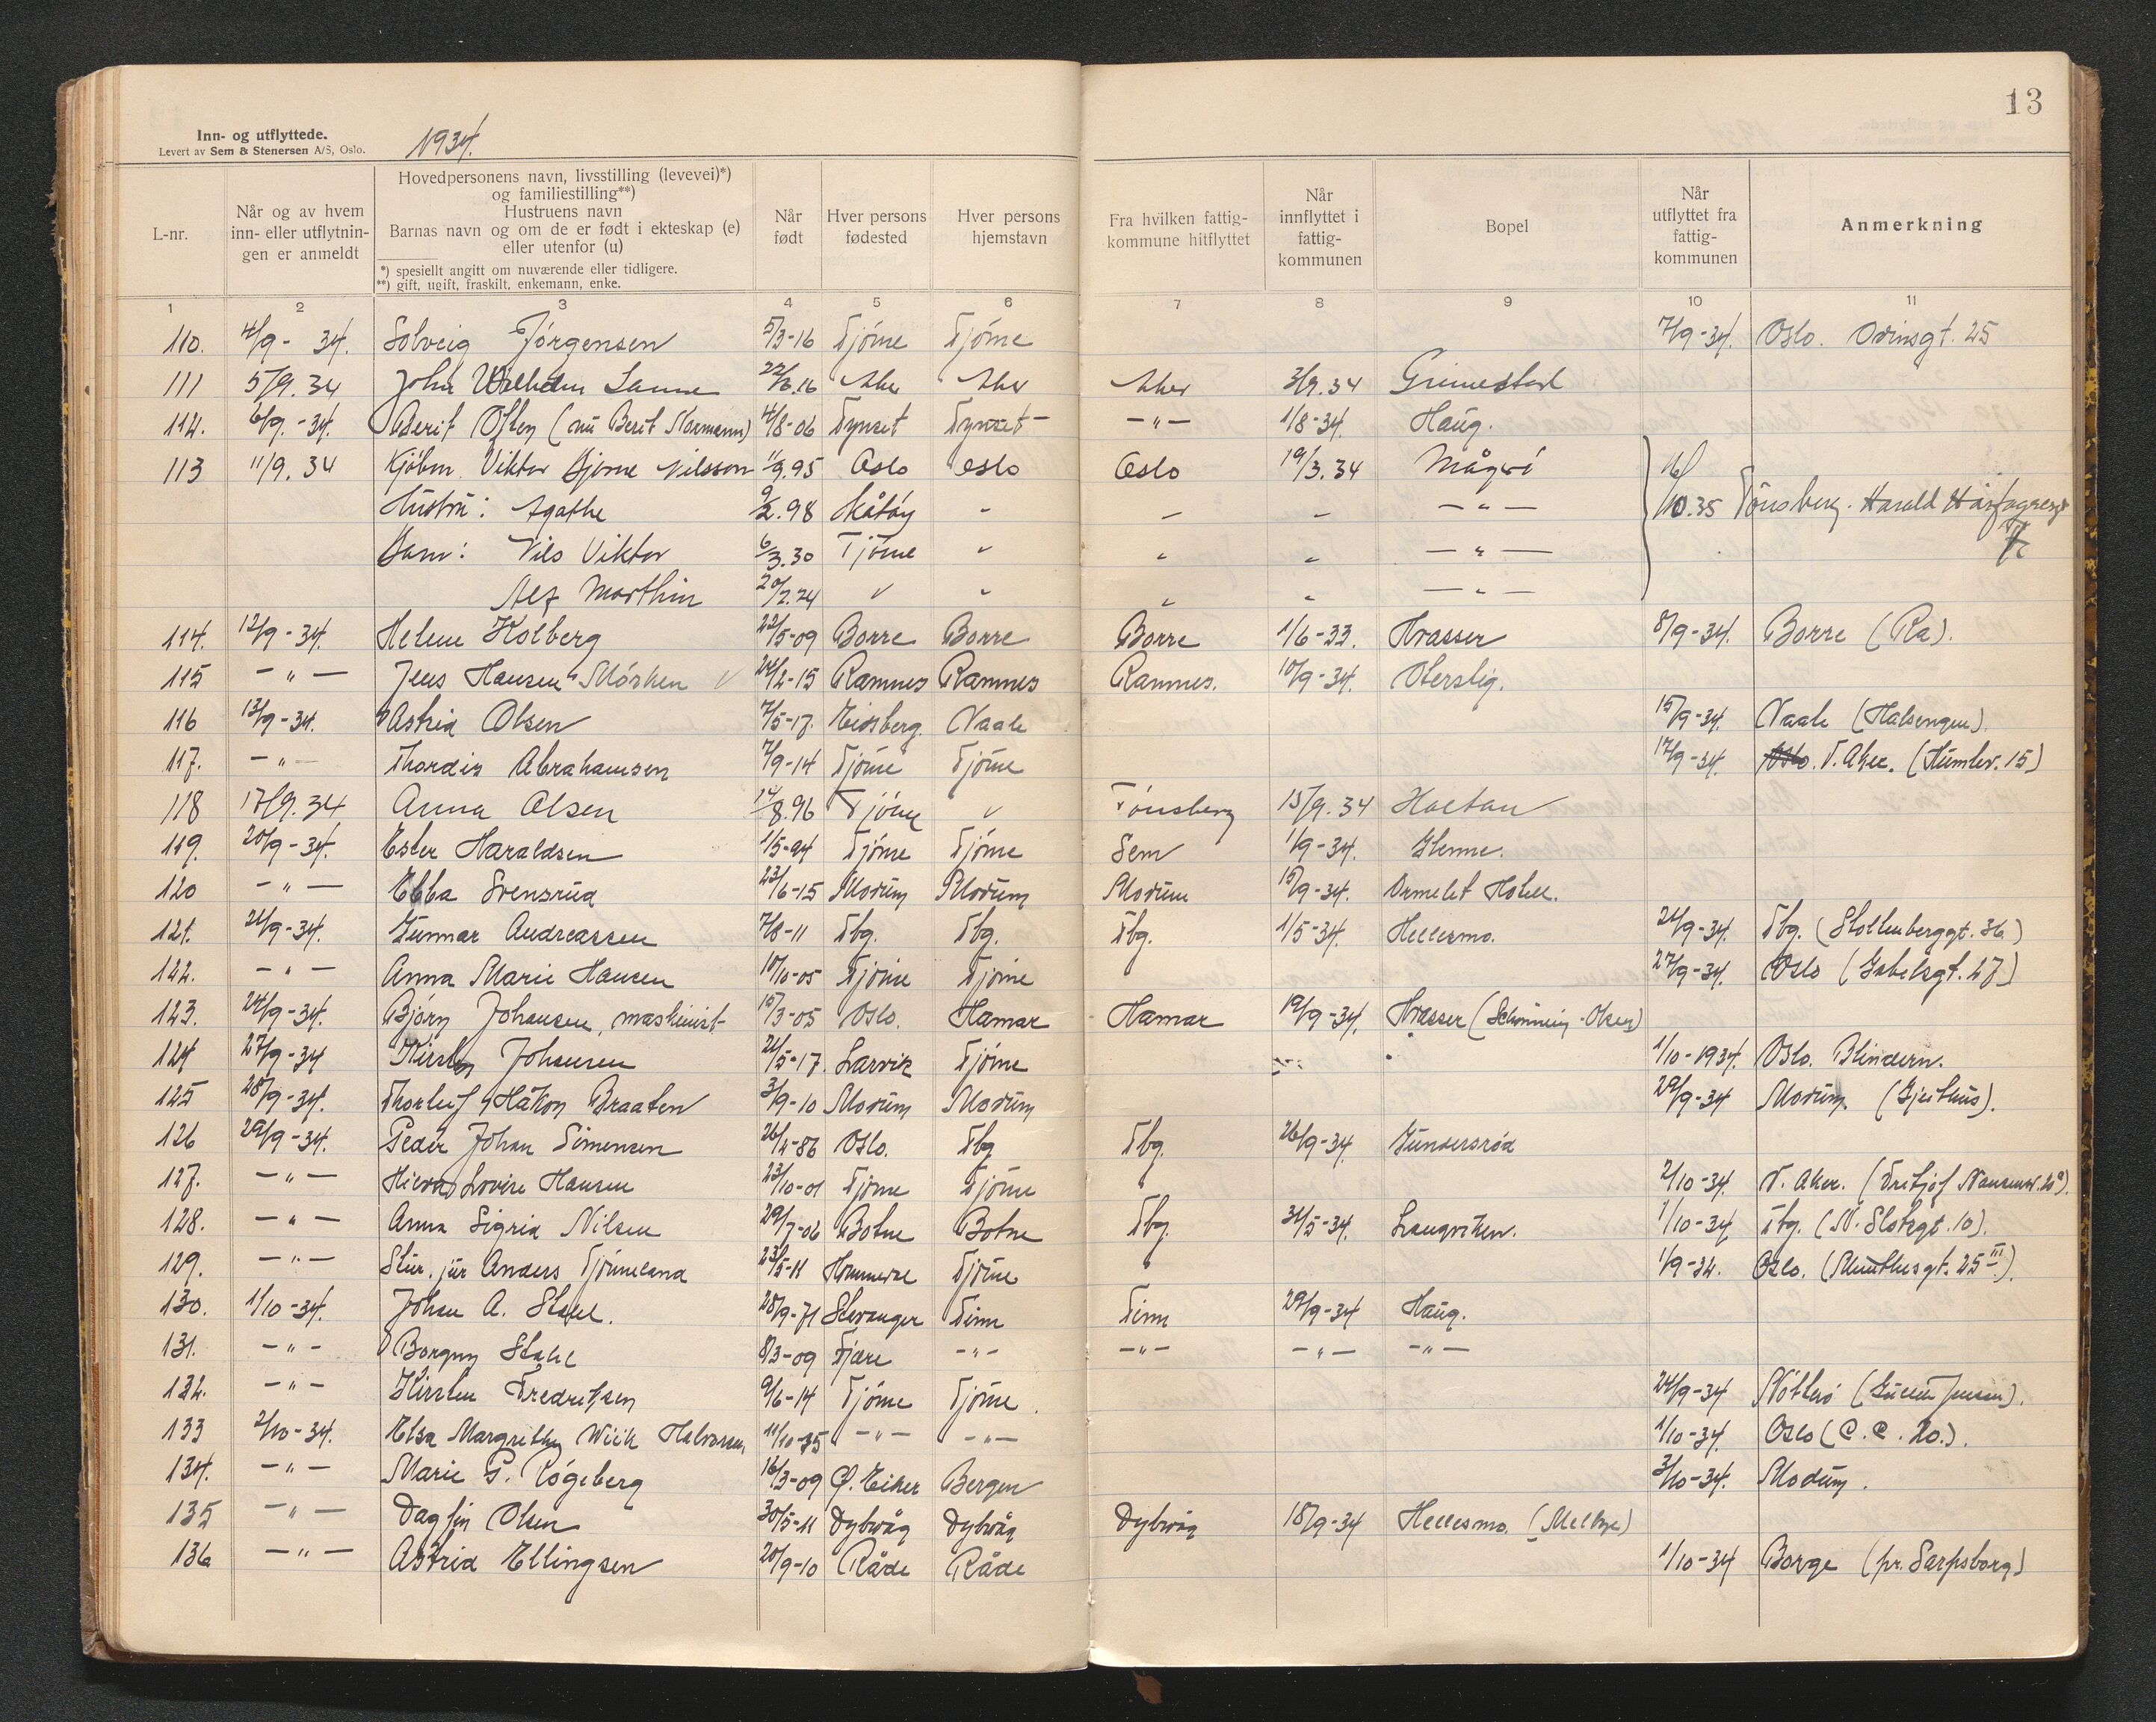 13
Inn- og utflyttede.
Levert av Sem & Stenersen A/S, Oslo.
1934.
L-nr.
Når og av hvem inn- eller utflytningen er anmeldt
Hovedpersonens navn, livsstilling (levevei)*)
og familiestilling**)
Hustruens navn
Barnas navn og om de er født i ekteskap (e)
eller utenfor (u)
*) spesiellt angitt om nuværende eller tidligere.
**) gift, ugift, fraskilt, enkemann, enke.
Når født
Hver persons fødested
Hver persons hjemstavn
Fra hvilken fattigkommune hitflyttet
Når innflyttet i fattigkommunen
Bopel
Når utflyttet fra fattigkommunen
Anmerkning
1 2 3 4 5 6 7 8 9 10 11
110. 4/9 - 34. Solveig Jörgensen 5/3-16 Tjöme Tjöme 7/9-34. Oslo. Odinsgt. 25
111 5/9.34 John Wilhelm 22/6.16 Aker Aker Aker 3/9.34 Grimestad
112. 6/9.-34. Berit Often (nu Berit Normann) 4/8-06 Tynset Tynset -"- 1/8-34. Haug.
113 11/9.34 Kjöbm. Viktor Bjerne Nilsson 11/9.95 Oslo Oslo Oslo 19/3.34 Mågerö
Hustru: Agathe 9/2.98 Skåtöy " - - -"- /10.35 Tönsberg. Harald Hårfagresgt
Barn: Nils Viktor 6/3.30 Tjöme " " " -"-
Alf Marthin 20/2.24 " " " " -"-
114. 12/9-34. Helene Kolberg 22/5-09 Borre Borre Borre 1/6-33. Hvasser 8/9-34. Borre (Ra).
115 -"- Jens Hansen Mörken 24/2-15 Ramnes Ramnes Ramnes. 10/9-34. Oterslig.
116 13/9-34. Astrid Olsen 7/5-17. Eidsberg. Vaale 15/9-34. Vaale (Halsengen).
117. -"- Thordis Abrahamsen 7/9-14 Tjöme Tjöme 17/9-34. Oslo. V. Aker. (Humlev. 15)
118 17/9.34 Anna Olsen 14/8.96 Tjöme " Tönsberg 15/9.34 Holtan
119. 20/9-34. Ester Haraldsen 1/5-94 Tjöme Tjöme Sem 1/9-34. Glenne.
120 -"- Ebba Svensrud 23/6-15 Modum Modum Modum 15/9-34. Ormelet Hotell.
121. 21/9-34. Gunnar Andreassen 7/8-11 Tbg. Tbg. Tbg. 1/5-34. Hellesmo. 21/9-34. Tbg. (Stoltenberggt. 36)
122. -"- Anna Marie Hansen 10/10-05 Tjöme Tjöme 27/9-34. Oslo (Gabelsgt. 27)
123. 24/9-34. Björn Johansen, maskinist 15/3-05 Oslo. Hamar Hamar 19/9-34. Hvasser (Schönning-Olsen)
124 27/9-34 Kirsten Johansen 21/5-17. Larvik Tjöme 1/10-1934. Oslo. Blindern.
125 28/9-34. Thorleif Håkon Braaten 3/9-10 Modum Modum 29/9-34 Modum. (Gjeithus).
126 29/9-34. Peder Johan Simensen 26/2-86 Oslo. Tbg Tbg. 26/9-34. Gundersröd
127. -"- Lovise Hansen 23/10-01 Tjöme Tjöme 2/10-34. V. Aker. (Fritjof Nansensv. 20a).
128. -"- Anna Sigrid Nilsen 29/7-06 Botne Botne Tbg. 31/5-34. Langviken. 1/10-34 Tbg. (N. Slotsgt. 10).
129. -"- Stud. jur Anders Tjönneland 23/5-11 Hommedal Tjöme 1/9-34. Oslo. (Munthesgt. 25 III).
130. 1/10-34. Johan A. Stahl. 28/9-71 Stavanger Tinn Tinn 29/9-34 Haug.
131. -"- Borgny Stahl 8/3-09 Fjære -"- -"- -"- -"-
132. -"- Kirsten Fredriksen 9/6-14 Tjöme Tjöme. 24/9-34 Nötterö (Jensen).
133 2/10-34. Elsa Margrethe Wiik Halvorsen 11/10- -"- -"- 1/10-34. Oslo (C. C. 20.).
134. -"- Marie P. Rögeberg 16/3-09 Ö. Eiker Bergen 3/10-34. Modum.
135 -"- Dagfin Olsen 30/5-11 Dybvåg Dybvåg Dybvåg 18/9-34 Hellesmo. (Melbye)
136 -"- Astrid Ellingsen 20/9-10 Råde Råde 1/10-34 Borge (pr. Sarpsborg)